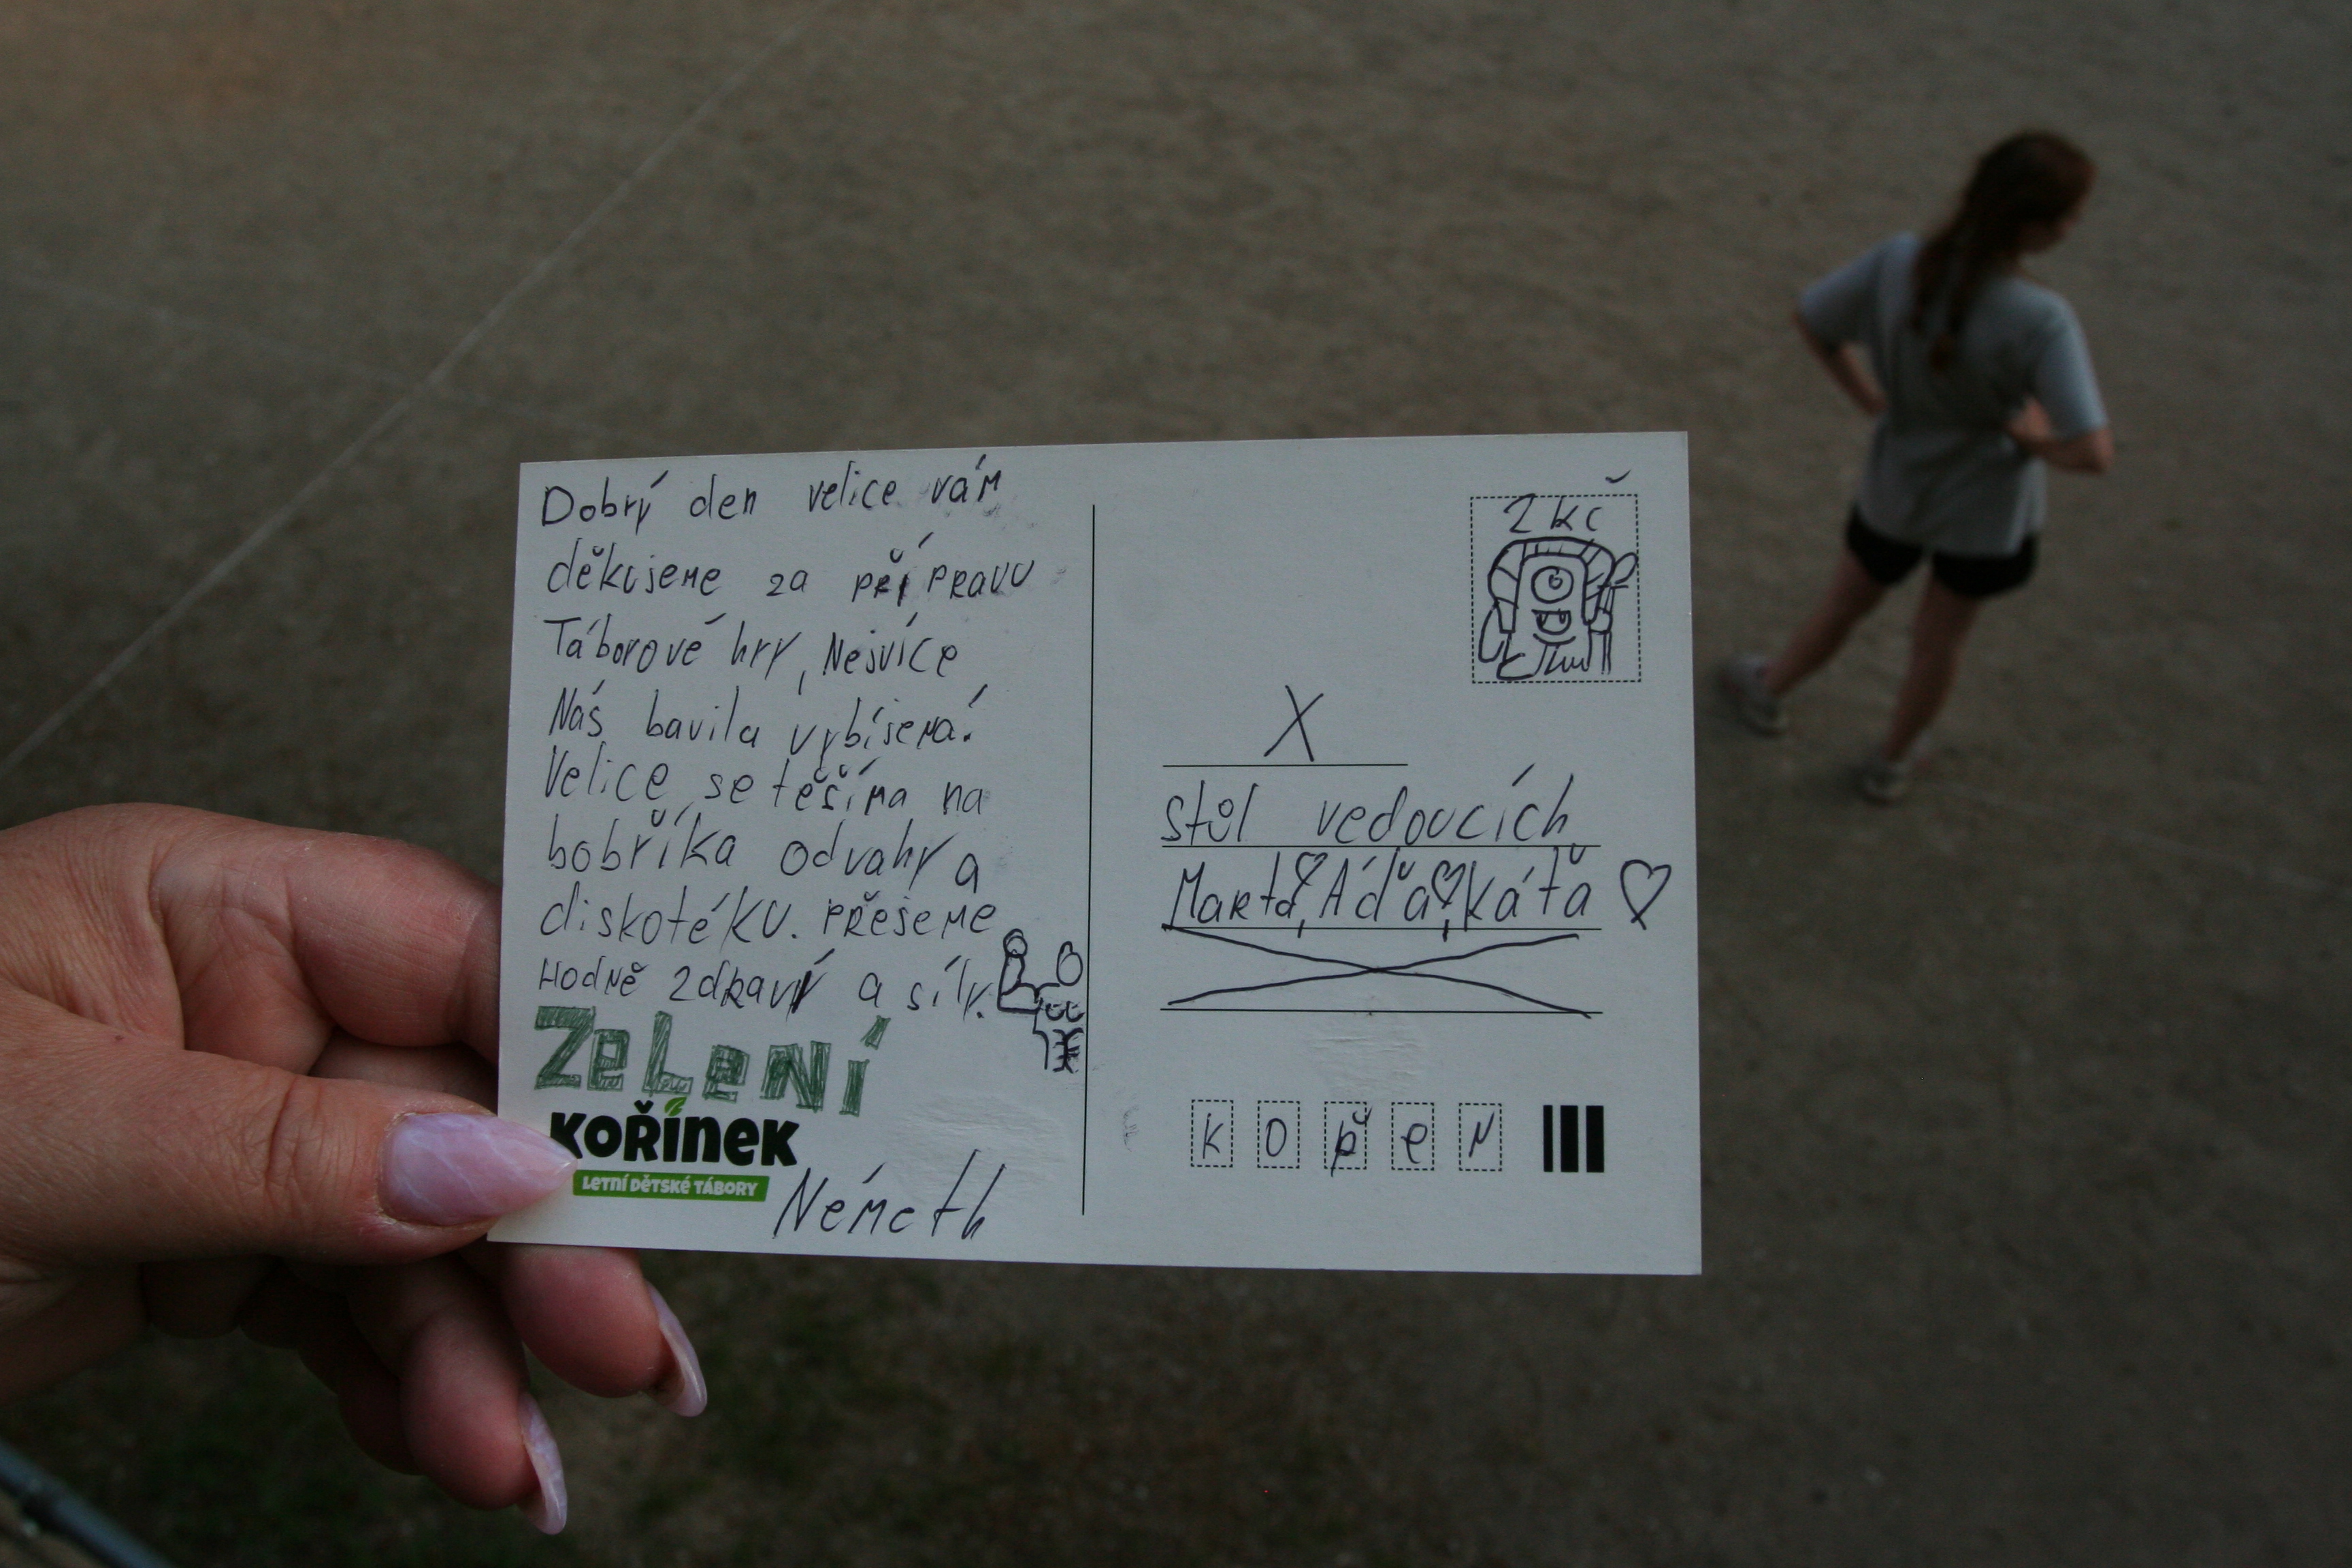 Dobrý den velice vám
děkujeme za přípravu
Táborové hry, Nejvíce
Nás bavila vybíjená.
Velice se těšíma na
bobříka odvahy a
diskotéku. Přejeme
Hodně zdraví a síly.
ZeLeNí
KOŘÍNEK
LETNÍ DĚTSKÉ TÁBORY
Németh
2 kč
X
stůl vedoucích
Marta, Áďa, Káťa
K o ř e n